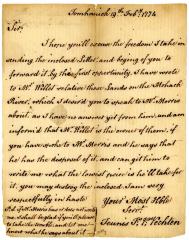 Tomhanick 19th Feby 1774
Sir,
I hope you'll excuse the freedom I take in
sending the inclosed Letter and beging of you to
forward it by the first opportunity. I have wrote
to Mr Willet relative those Lands on the
River, which I desir'd you to speak to Mr Morris
about, as I have no answer yet from him, and am
inform'd that Mr Willet is the owner of them, if
you have spoke to Mr Morris and he says that
he has the disposal of it, and can git him to
write me what the lowest price is he'll take for
it, you may destroy the inclosed. I am very
respectfully in haste
Your Most Hble
Servt
Teunis Vn Vechten